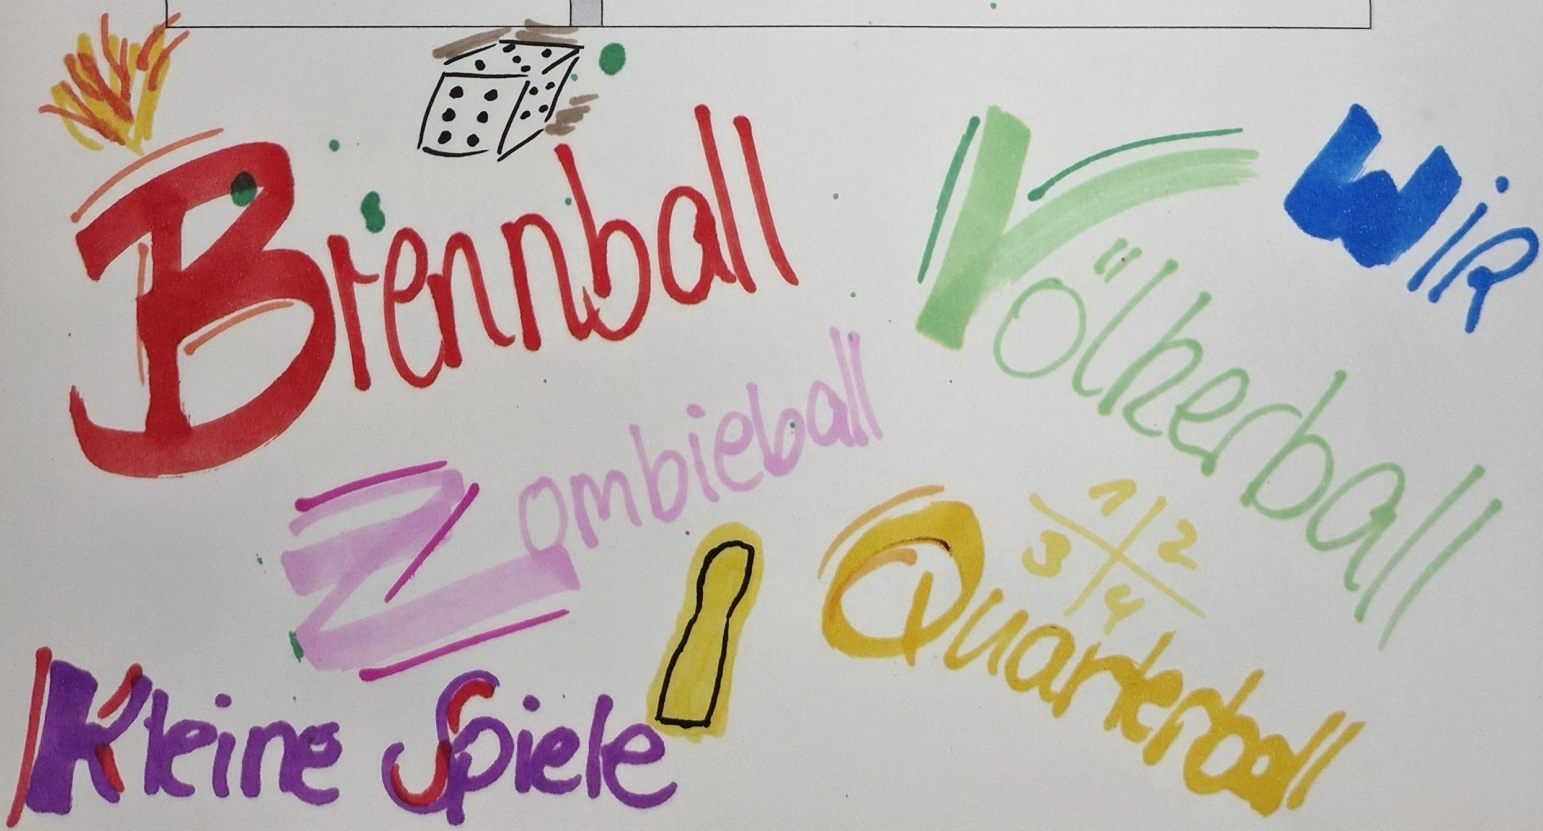 Brennball
Völkerball
WIR
Zombieball
1 2
3 4
Quarterball
Kleine Spiele